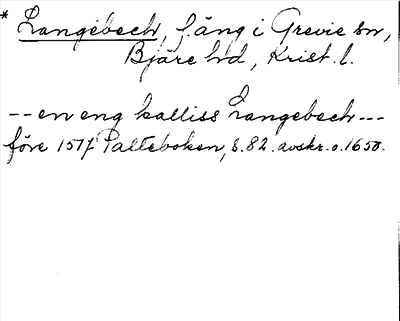 * Langebech, f. äng i Grevie sn,
Bjäre hd, Krist. l.
-- en eng kalliss Langebech ---
före 1517 Palteboken, s. 82. avskr. o. 1650.